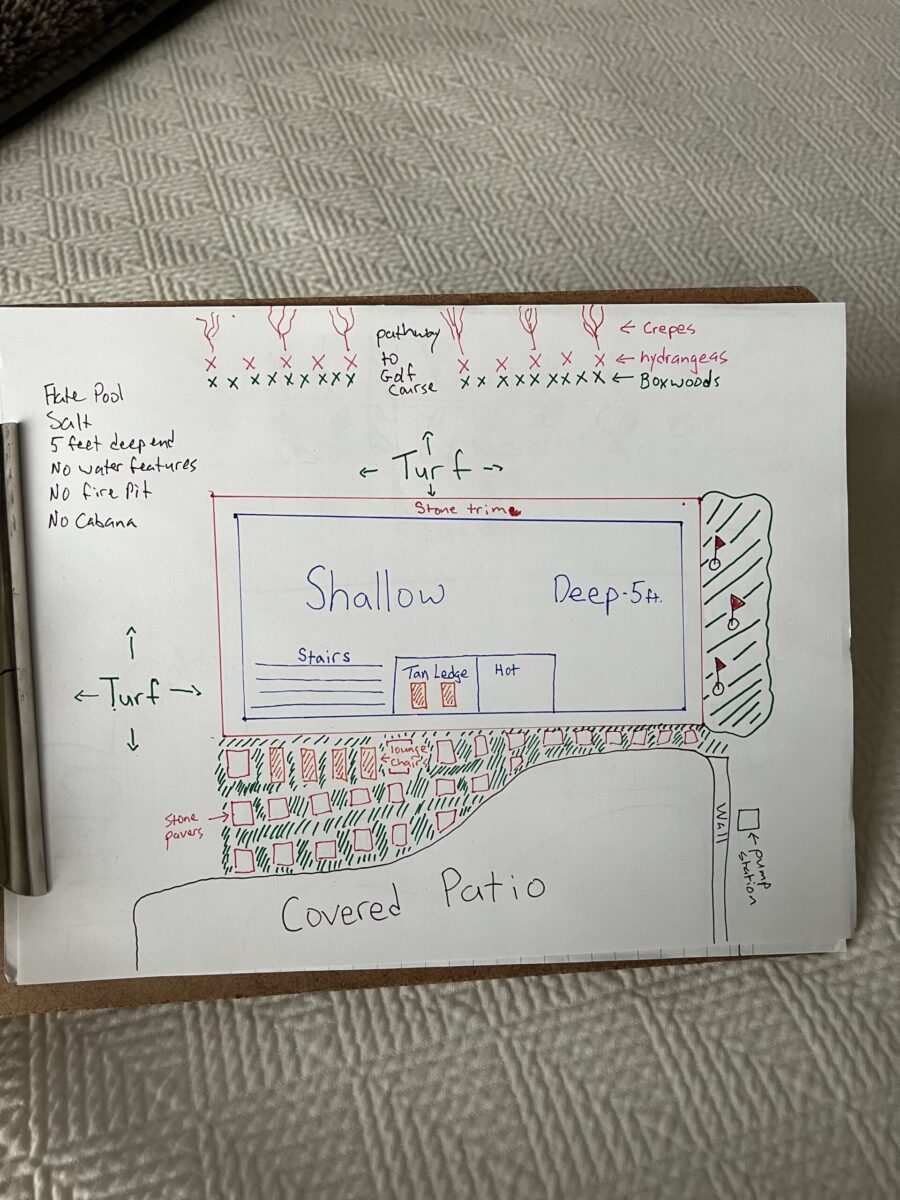 pathway
to
Golf
Course
← Crepes
← hydrangeas
← Boxwoods
Pool
Salt
5 feet deep end
No water features
No fire Pit
No Cabana
← Turf →
Stone trim
Shallow
Deep-5ft.
Stairs
Tan Ledge
Hot
← Turf →
← lounge
chairs
Stone
pavers →
Wall
← pump
station
Covered Patio